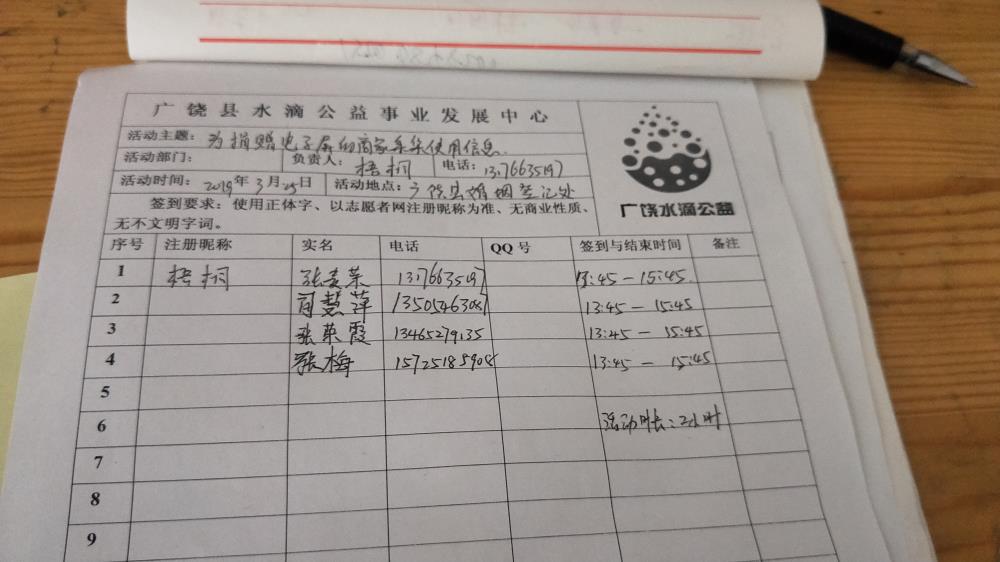 广饶县水滴公益事业发展中心
活动主题：为捐赠电子屏的商家采集使用信息
活动部门： 负责人：梧桐 电话：
活动时间：2019年3月25日 活动地点：广饶县婚姻登记处
签到要求：使用正体字、以志愿者网注册昵称为准、无商业性质、
无不文明字词。
广饶水滴公益
序号 注册昵称 实名 电话 QQ号 签到与结束时间 备注
1 梧桐 13:45-15:45
2 13505463087 13:45-15:45
3 张荣霞 13465279135 13:45-15:45
4 张梅 15725185908 13:45-15:45
5
6 活动时长：2小时
7
8
9